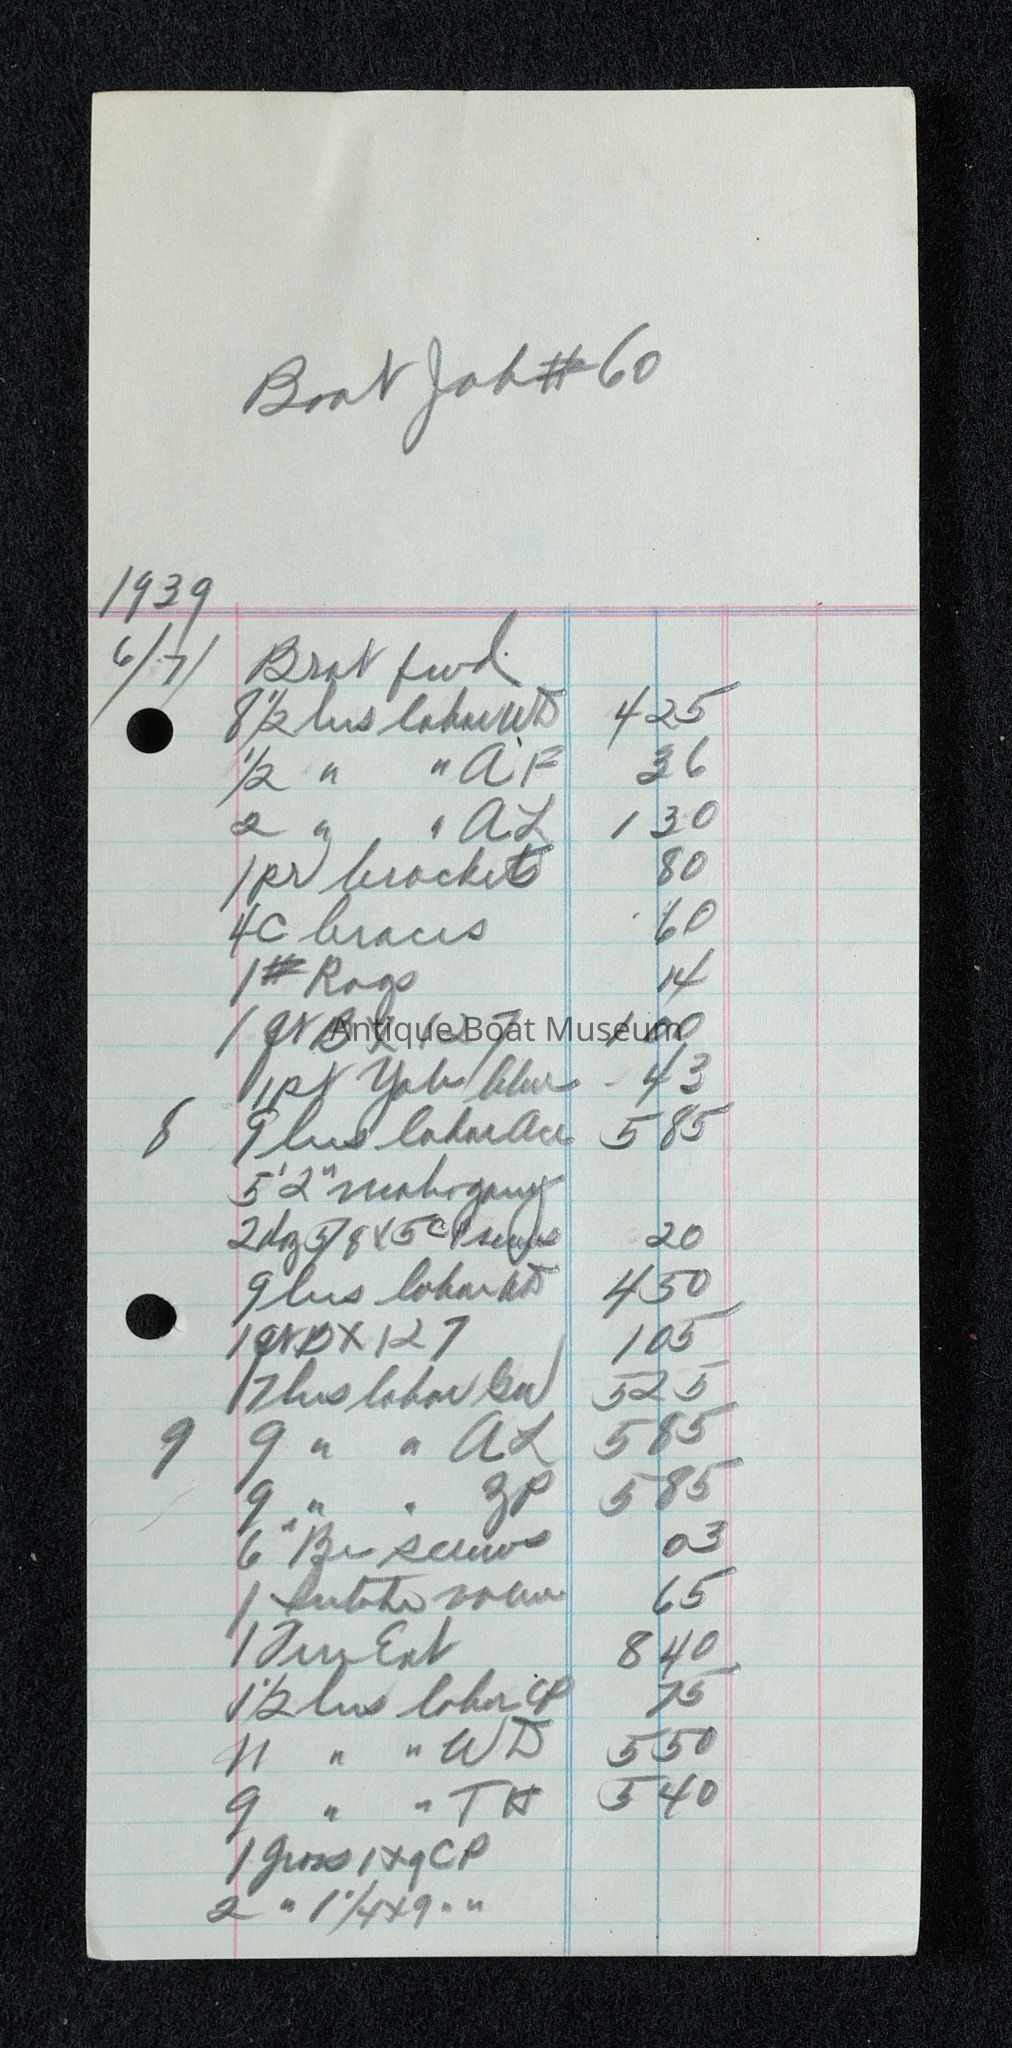 Boat Job #60
1939
6/7/ Brot fwd.
8 1/2 hrs labor WD 4 25
1/2 " " A F 36
2 " " AL 1 30
1 pr brackets 80
4 C braces 60
1 # Rags 14
1 qt DX 127 1 00
Antique Boat Museum
1 pt 43
8 9 hrs labor Ace 5 85
5' 2" mahogany
2 doz 5/8 x 5 CP screws 20
9 hrs labor WD 4 50
1 qt DX 127 1 05
7 hrs labor 5 25
9 9 " " AL 5 85
9 " " ZP 5 85
6 " Br screws 03
1 65
1 8 40
1 1/2 hrs labor CP 75
11 " " WD 5 50
9 " " TH 5 40
1 gross 1 x 9 CP
2 " 1 1/4 x 9 " "